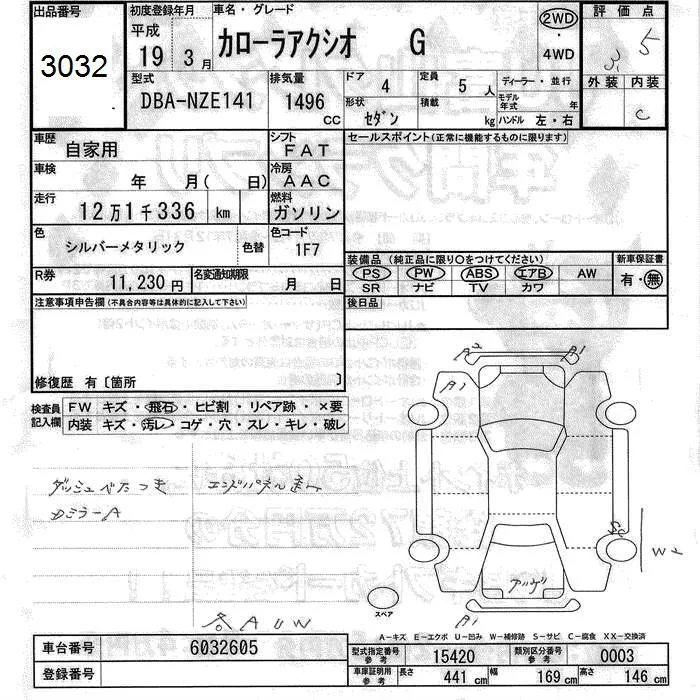 出品番号
3032
初度登録年月
平成
19 3月
車名・グレード
カローラアクシオ G
2WD
・
4WD
評価点
5
外装 内装
C
型式
DBA-NZE141
排気量
1496
cc
ドア
4
定員
5 人
ディーラー・並行
形状
セダン
積載
kg
モデル年式 年
ハンドル 左・右
車歴
自家用
シフト
FAT
車検
年 月( 日)
冷房
AAC
走行
12万1千336 km
燃料
ガソリン
色
シルバーメタリック
色替
色コード
1F7
R券
11,230 円
名変通知期限
月 日
セールスポイント(正常に機能するものに限ります)
装備品(純正品に限り○をつけてください)
PS PW ABS エアB AW
SR ナビ TV カワ
新車保証書
有・無
後日品
注意事項申告欄(不具合内容等は具体的に記入して下さい)
修復歴 有〔箇所 〕
検査員記入欄
FW キズ・飛石・ヒビ割・リペア跡・×要
内装 キズ・汚レ・コゲ・穴・スレ・キレ・破レ
ダッシュベタつき
DミラーA
エンドパネル
各AUW
A1
A1
A1
W
スペア
A-キズ E-エクボ U-凹み W-補修跡 S-サビ C-腐食 XX-交換済
車台番号
6032605
登録番号
型式指定番号 参考
15420
類別区分番号 参考
0003
車庫証明用 参考
長さ
441 cm
幅
169 cm
高さ
146 cm